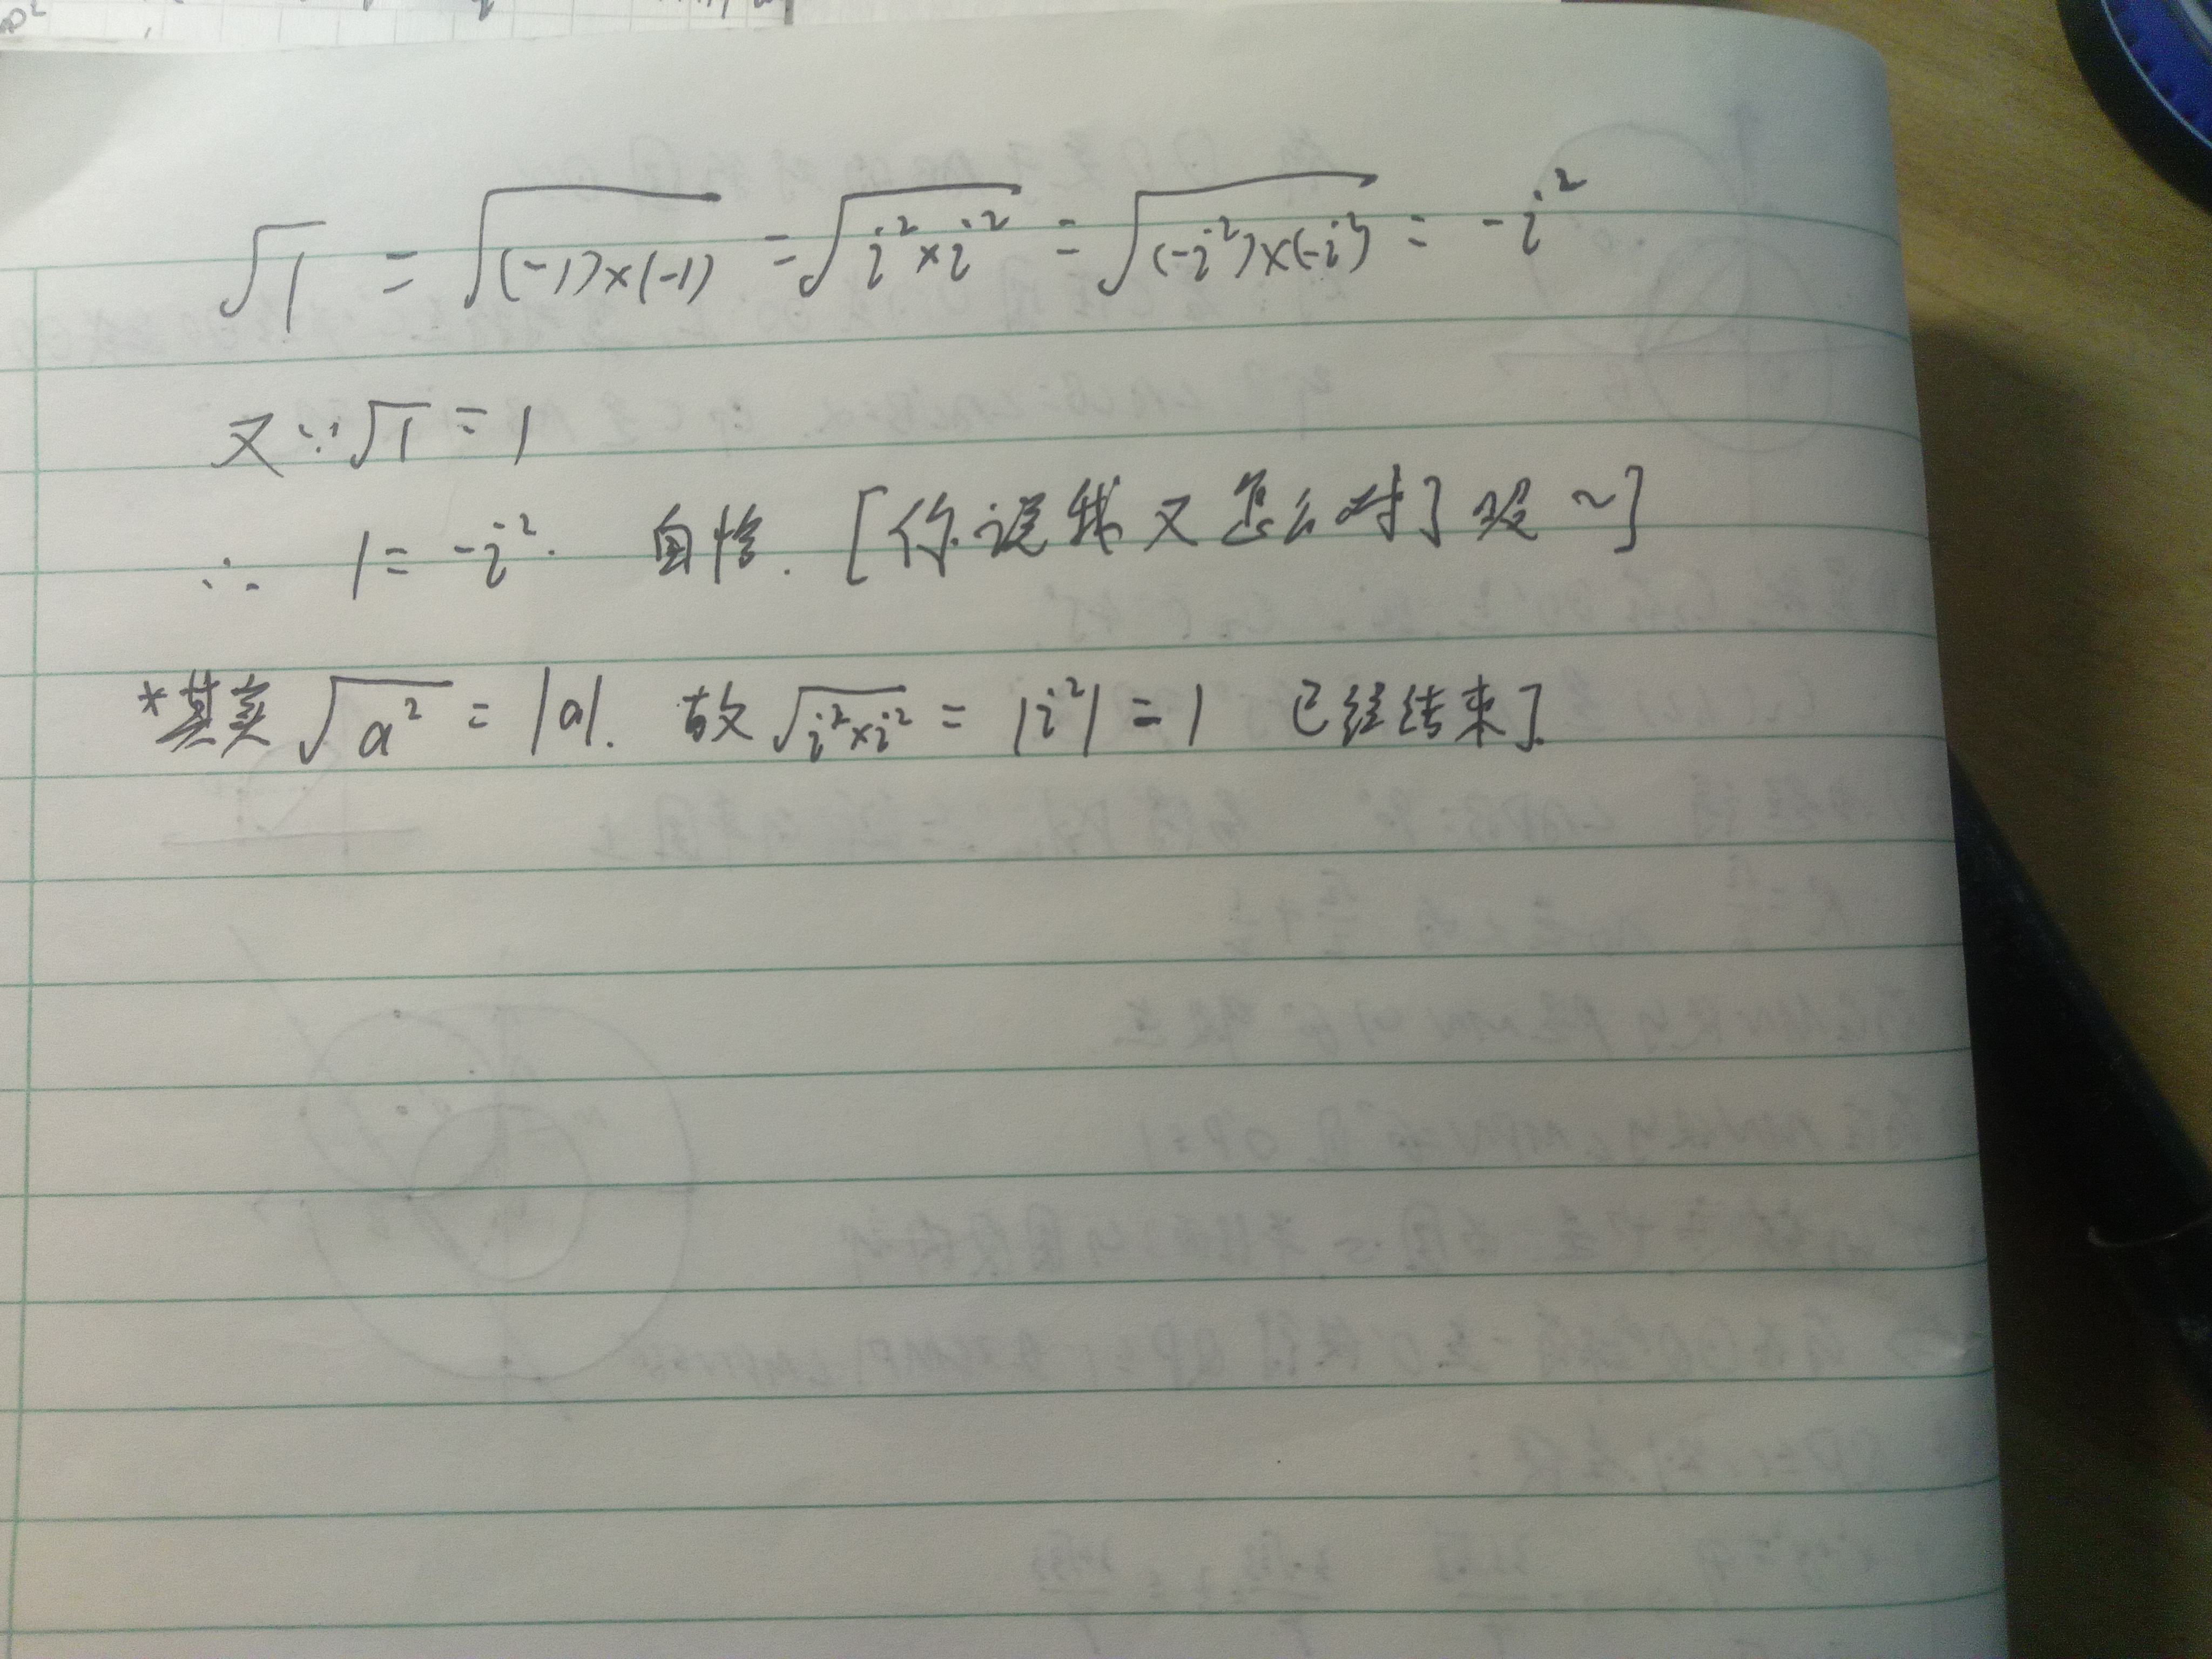 √1 = √((-1)×(-1)) = √(i²×i²) = √((-i²)×(-i²)) = -i²
又∵√1 = 1
∴ 1 = -i². 自恰. [你说我又怎么对了呢~]
*其实 √a² = |a|. 故 √(i²×i²) = |i²| = 1 已经结束了.